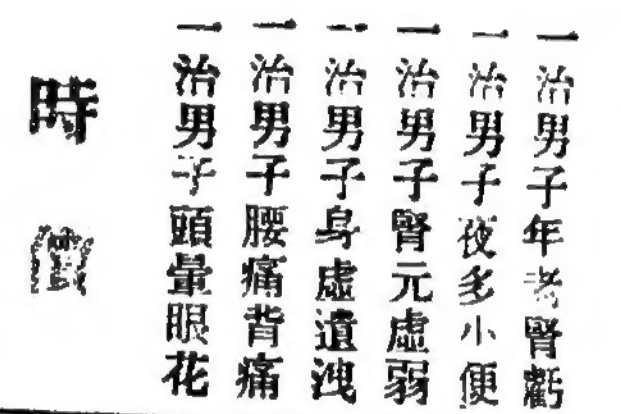 一治男子年老腎虧
一治男子夜多小便
一治男子腎元虛弱
一治男子身虛遺洩
一治男子腰痛背痛
一治男子頭暈眼花
時價